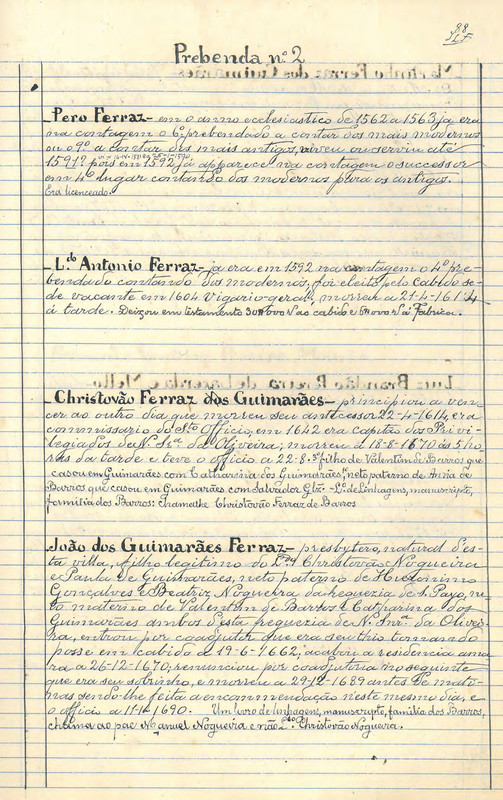 98
Prebenda nº 2
Pero Ferraz - em o anno ecclesiastico de 1562 a 1563 já era
na contagem o 6º prebendado a contar dos mais modernos
ou o 9º a contar dos mais antigos, viveu ou serviu até
1591? pois em 1592 já apparece na contagem o successor
em 4º lugar contando dos modernos para os antigos.
Era licenceado.
L.do Antonio Ferraz - já era em 1592 na contagem o 4º pre-
bendado contando dos modernos, foi eleito pelo cabido se-
de vacante em 1604 Vigario geral, morreu a 21-4-1614
á tarde. Deixou em testamento ao cabido e á Fabrica.
Christovão Ferraz dos Guimarães - principiou a ven-
cer ao outro dia que morreu seu antecessor 22-4-1614, era
commissario do Sto Officio, em 1642 era capitão dos Privi-
legiados de N. Sra da Oliveira; morreu a 18-8-1670 ás 5 ho-
ras da tarde e teve o officio a 22-8. filho de Valentim de Barros que
casou em Guimarães com Catharina dos Guimarães, neto paterno de Anna de
Barros que casou em Guimarães com Salvador Glz. - L.º de Linhagens, manuscripto,
familia dos Barros: chama-lhe Christovão Ferraz de Barros
João dos Guimarães Ferraz - presbytero, natural d'es-
ta villa, filho legitimo do L.do Christovão Nogueira
e Paula de Guimarães, neto paterno de Hieronimo
Gonçalves e Beatriz Nogueira da freguezia de S. Payo, ne-
to materno de Valentim de Barros e Catharina dos
Guimarães ambos d'esta freguezia de N. Snrª da Olivei-
ra, entrou por coadjutor que era seu thio tomando
posse em cabido a 19-6-1662, acabou a residencia ama-
ra a 26-12-1670, renunciou por coadjutoria no seguinte
que era seu sobrinho, e morreu a 29-12-1689 antes de mati-
nas sendo-lhe feita a encommendação neste mesmo dia, e
o officio a 11-1-1690. Um livro de linhagens, manuscripto, familia dos Barros,
chama ao pae Manuel Nogueira e não L.do Christovão Nogueira.